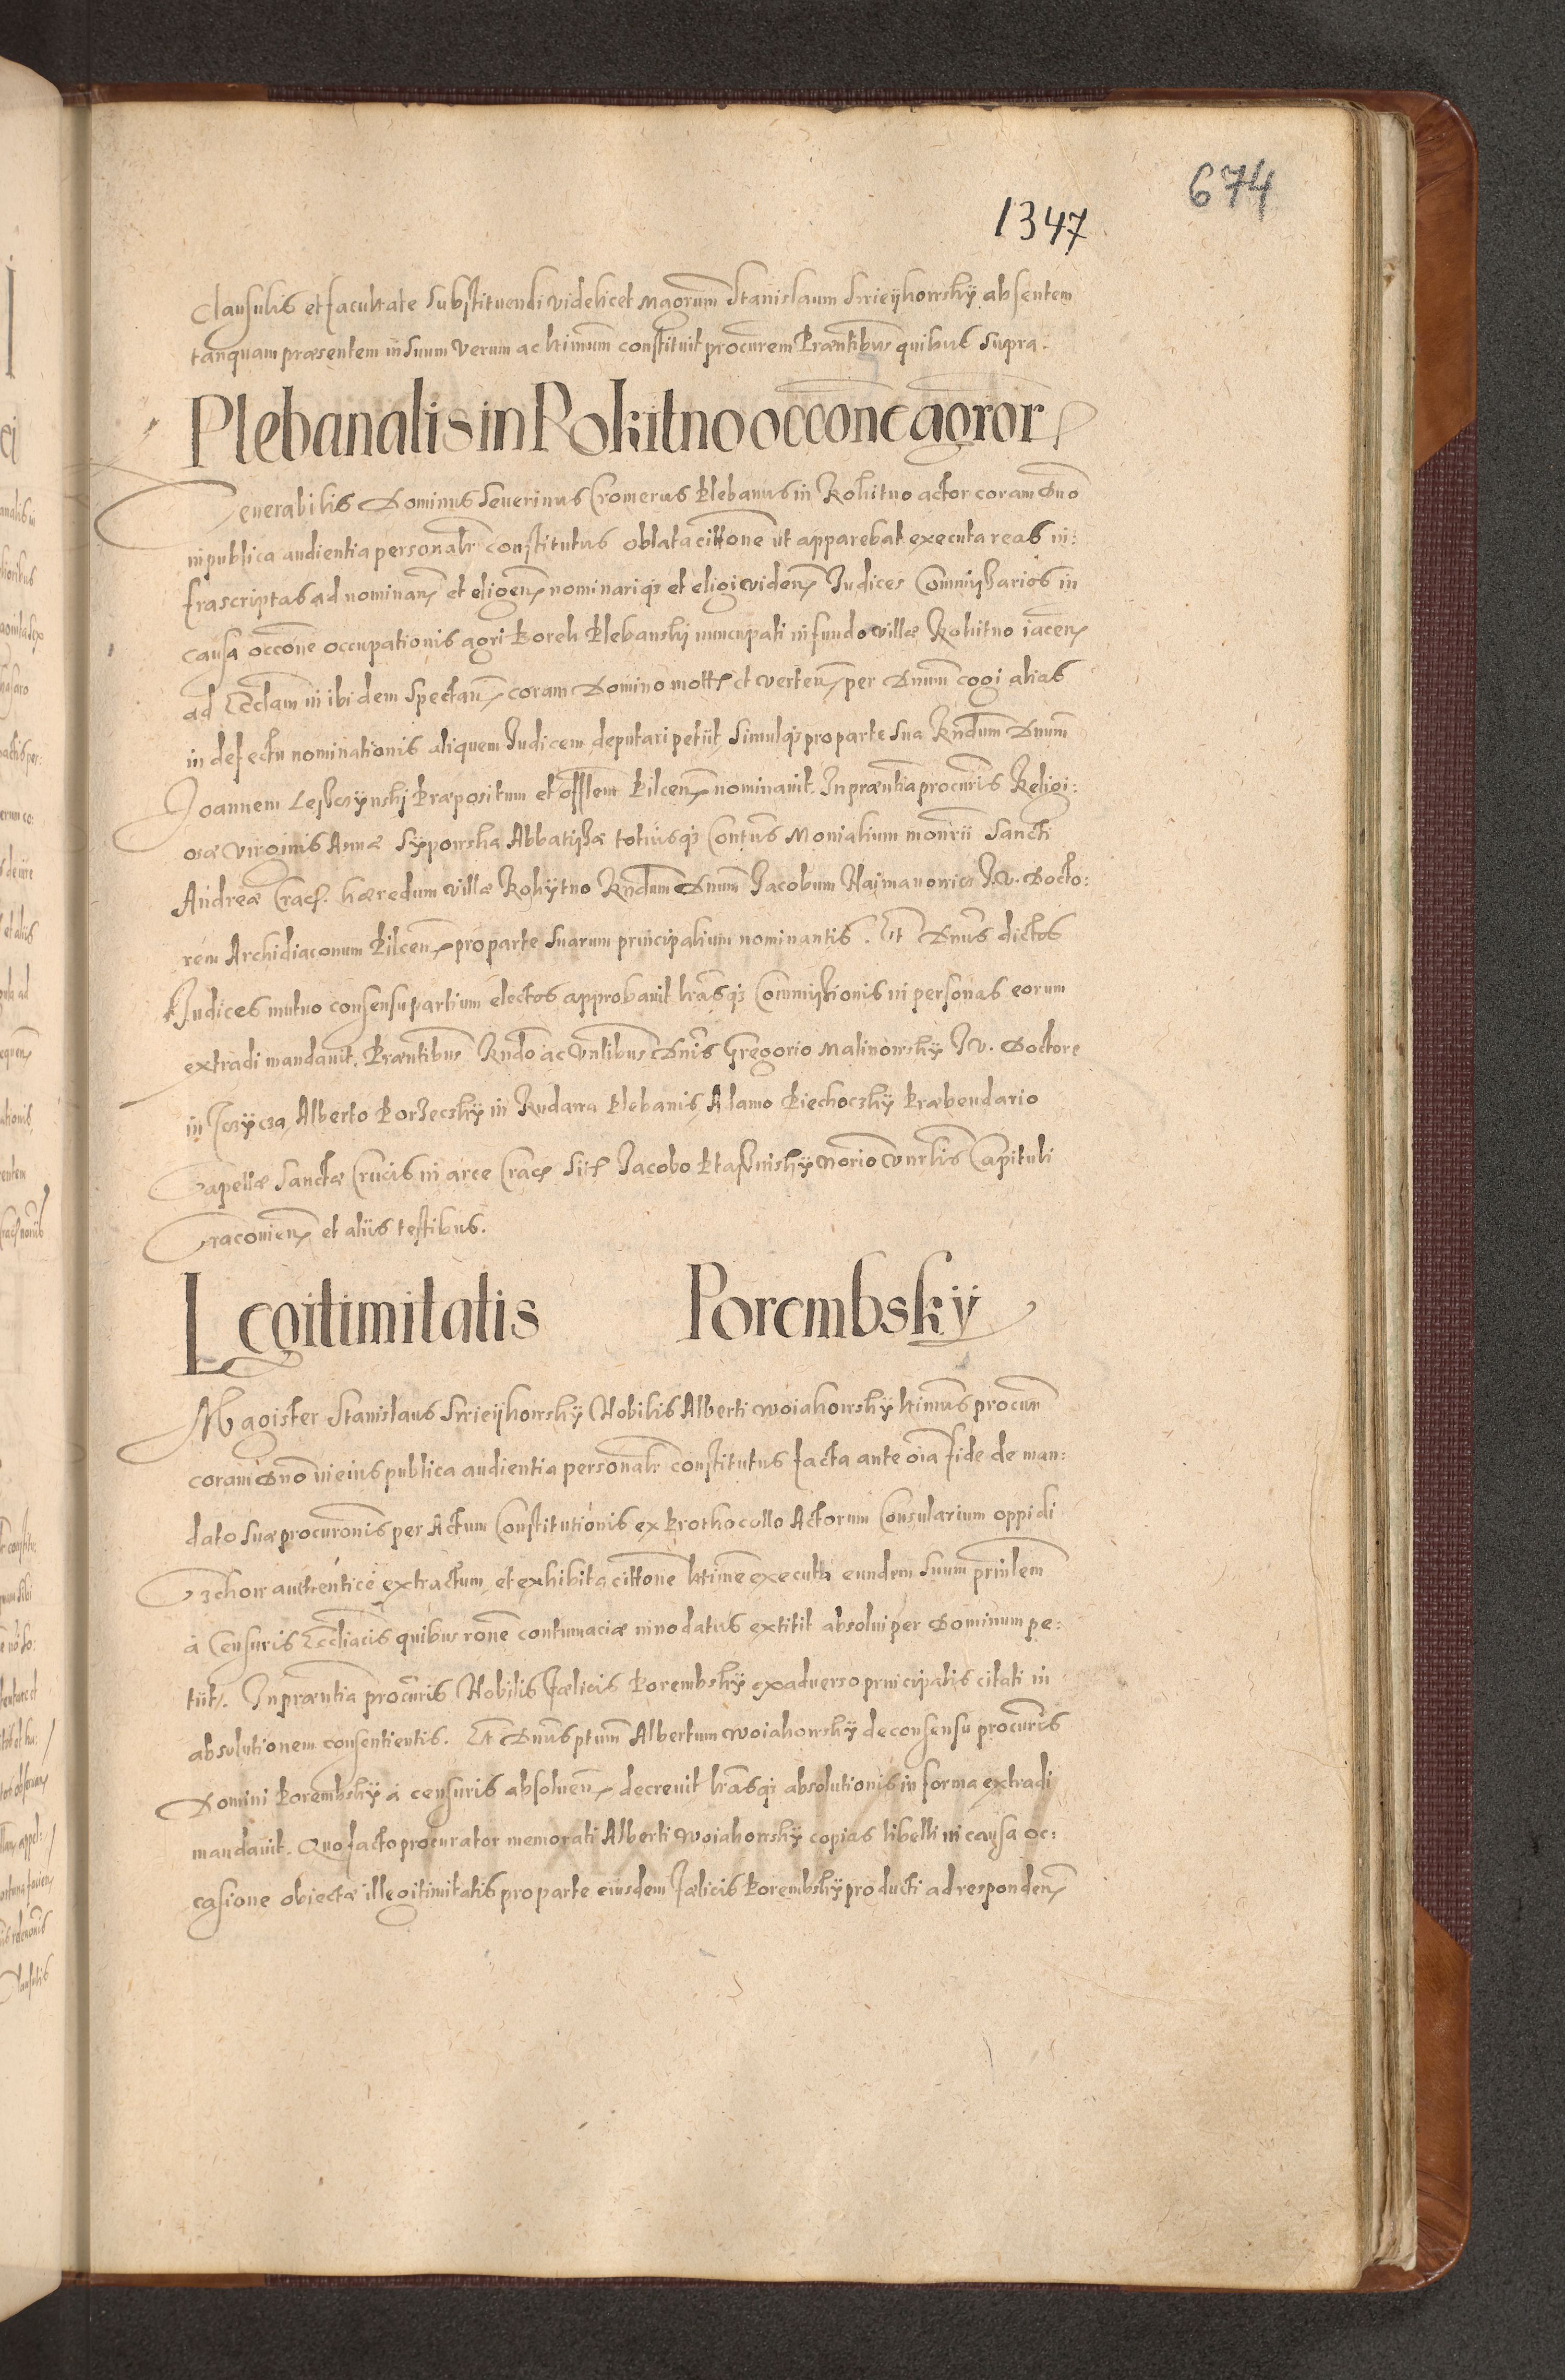 674
1347
Clausulis et facultate substituendi videlicet Magrum Stanislaum Srzieÿkowskÿ absentem
tanquam præsentem in suum verum ac ltimum constituit procurem Præntibus quibus supra.
Plebanalis in Rokitno occone agror
Venerabilis Dominus Seuerinus Cromerus Plebanus in Rokitno actor coram Dno
in publica audientia personalr constitutus oblata cittone ut apparebat executa reas in:
frascriptas ad nominan et eligen nominariq3 et eligi viden Judices Commissarios in
causa occone occupationis agri Borek Plebanski nuncupati in fundo villæ Rokitno iacen
ad Ecclam in ibidem spectan coram Domino mott et verten per Dnum cogi alias
in defectu nominationis aliquem Judicem deputari petiit, simulq3 pro parte sua Rndum Dnum
Joannem Leszczÿnskj Præpositum et offlem Pilcen nominavit. In præntia procuris Religi:
osæ virginis Annæ Sÿpowska Abbatissæ totiusq3 Contus Monialium monrii Sancti
Andreæ Crac. hæredum villæ Rokÿtno Rndum Dnum Jacobum Naimanowicz J.V. Docto:
rem Archidiaconum Pilcen pro parte suarum principalium nominantis. Et Dnus dictos
Judices mutuo consensu partium electos approbavit lrasq3 Commissionis in personas eorum
extradi mandavit. Præntibus Rndo ac Vnlibus Dnis Gregorio Malinowskÿ J V. Doctore
in Alberto Porzeczkÿ in Rudawa Plebanis, Adamo Piechoczkÿ Præbendario
Capellæ Sanctæ Crucis in arce Crac sitt Jacobo norio Vnrlis Capituli
Cracovien et aliis testibus.
Legitimitatis Porembskÿ
Magister Stanislaus Srzieÿkowskÿ Nobilis Alberti Woiakowskÿ ltimus procur
coram Dno in eius publica audientia personalr constitutus facta ante oia fide de man:
dato suæ procuronis per Actum Constitutionis ex Prothocollo Actorum Consularium oppidi
Czchow autentice extractum, et exhibita cittone ltime executa eundem suum prinlem
à Censuris Ecclïacis quibus rone contumaciæ innodatus extitit absolvi per Dominum pe:
tiit. In præntia procuris Nobilis Fælicis Porembskÿ ex adverso principalis citati in
absolutionem consentientis. Et Dnus ptum Albertum Woiakowskÿ de consensu procuris
Domini Porembskÿ à censuris absoluen decrevit lrasq3 absolutionis in forma extradi
mandavit. Quo facto procurator memorati Alberti Woiakowskÿ copias libelli in causa oc:
casione obiectæ illegitimitatis pro parte eiusdem Fælicis Porembskÿ producti ad responden